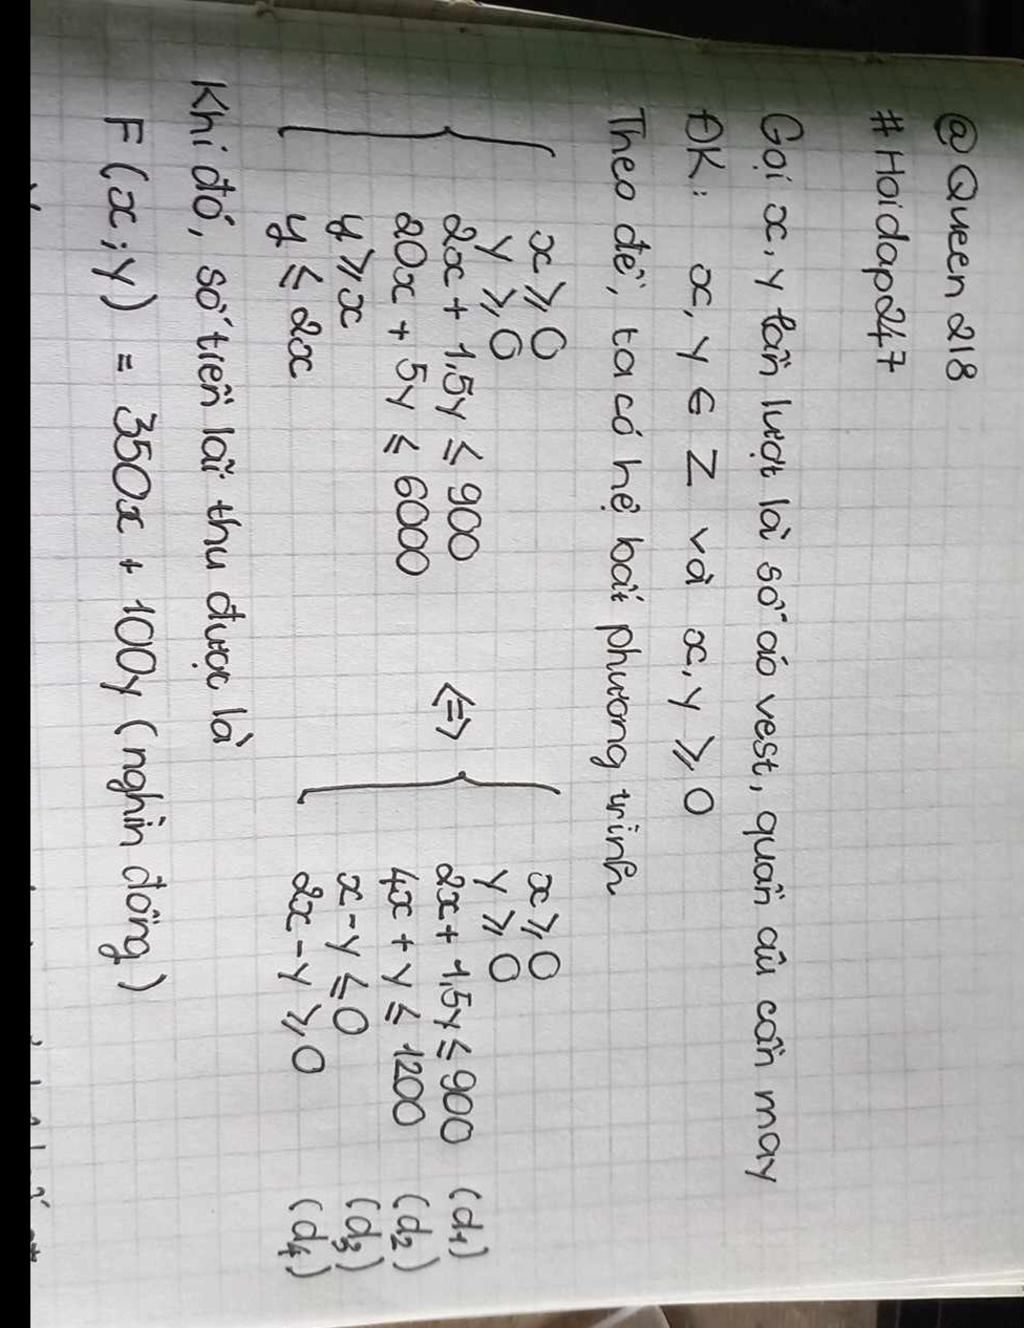 @Queen218
#Hoidap247
Gọi x, y lần lượt là số áo vest, quần âu cần may
ĐK: x, y ∈ Z và x, y ⩾ 0
Theo đề, ta có hệ bất phương trình
x ⩾ 0 x ⩾ 0
y ⩾ 0 y ⩾ 0
2x + 1,5y ≤ 900 2x + 1,5y ≤ 900 (d₁)
20x + 5y ≤ 6000 <=> 4x + y ≤ 1200 (d₂)
y ⩾ x x - y ≤ 0 (d₃)
y ≤ 2x 2x - y ⩾ 0 (d₄)
Khi đó, số tiền lãi thu được là
F(x; y) = 350x + 100y (nghìn đồng)